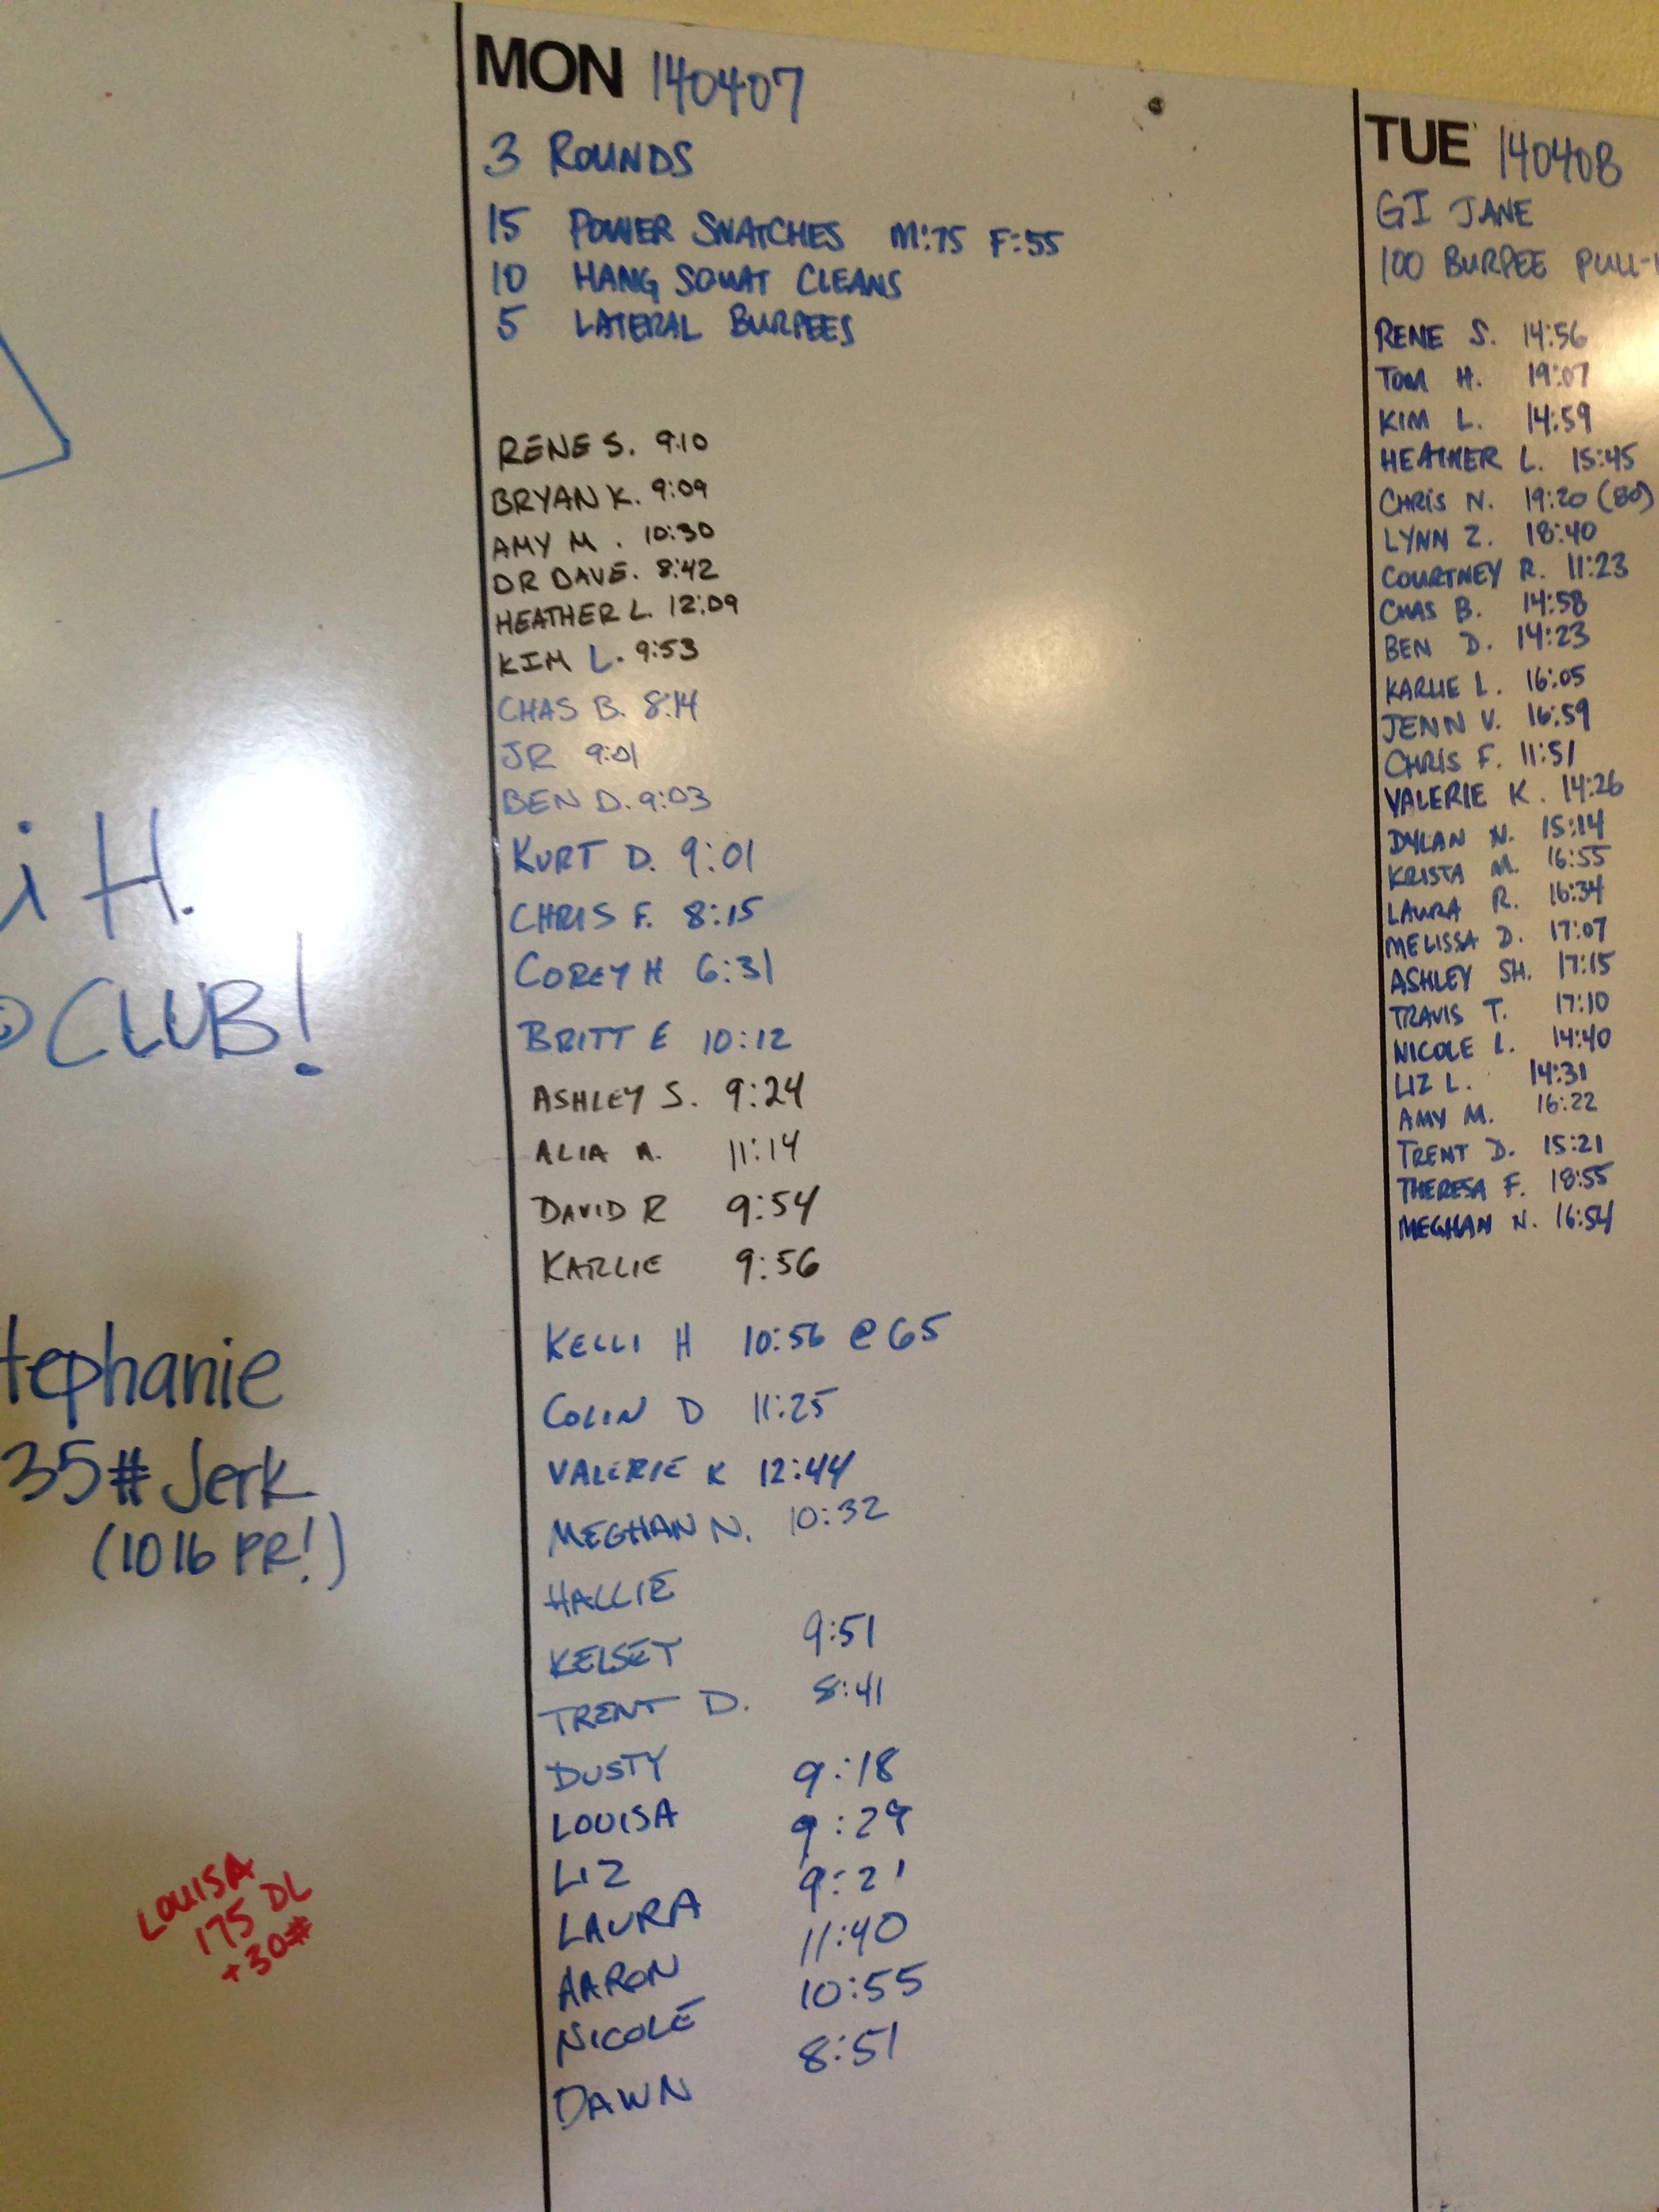 i H.
CLUB!
tephanie
35# Jerk
(10 lb PR!)
LOUISA
175 DL
+30#
MON 140407
3 ROUNDS
15 POWER SNATCHES M:75 F:55
10 HANG SQUAT CLEANS
5 LATERAL BURPEES
RENE S. 9:10
BRYAN K. 9:09
AMY M. 10:30
DR DAVE. 8:42
HEATHER L. 12:09
KIM L. 9:53
CHAS B. 8:14
JR 9:01
BEN D. 9:03
KURT D. 9:01
CHRIS F. 8:15
COREY H 6:31
BRITT E 10:12
ASHLEY S. 9:24
ALIA A. 11:14
DAVID R 9:54
KARLIE 9:56
KELLI H 10:56 @ 65
COLIN D 11:25
VALERIE K 12:44
MEGHAN N. 10:32
HALLIE
KELSEY 9:51
TRENT D. 8:41
DUSTY 9:18
LOUISA 9:29
LIZ 9:21
LAURA 11:40
AARON 10:55
NICOLE 8:51
DAWN
TUE 140408
GI JANE
100 BURPEE PULL-
RENE S. 14:56
TOM H. 19:07
KIM L. 14:59
HEATHER L. 15:45
CHRIS N. 19:20 (80)
LYNN Z. 18:40
COURTNEY R. 11:23
CHAS B. 14:58
BEN D. 14:23
KARLIE L. 16:05
JENN V. 16:59
CHRIS F. 11:51
VALERIE K. 14:26
DYLAN N. 15:14
KRISTA M. 16:55
LAURA R. 16:34
MELISSA D. 17:07
ASHLEY SH. 17:15
TRAVIS T. 17:10
NICOLE L. 14:40
LIZ L. 14:31
AMY M. 16:22
TRENT D. 15:21
THERESA F. 18:55
MEGHAN N. 16:54